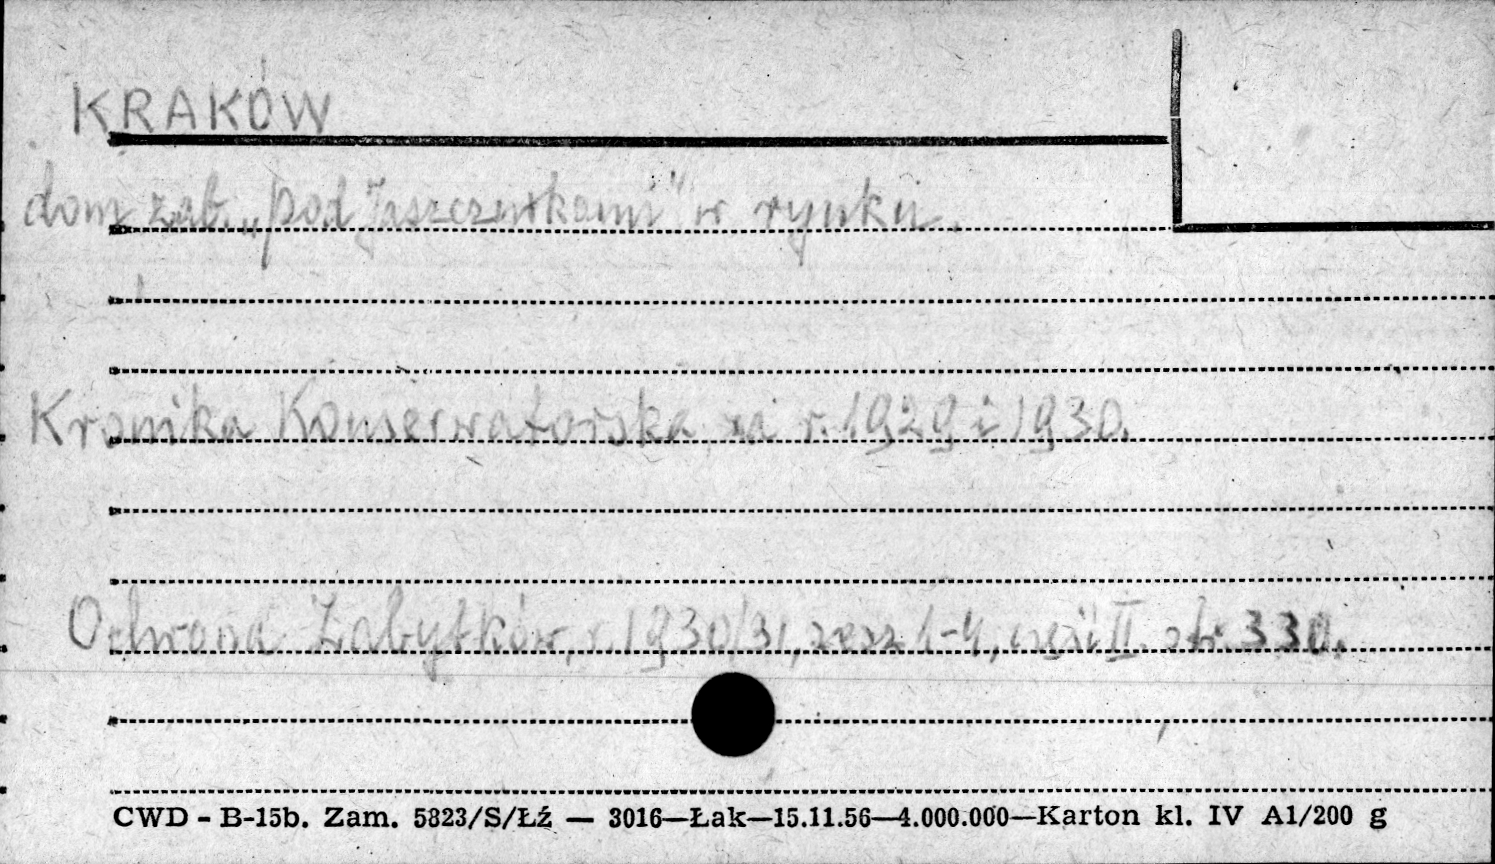 KRAKÓW
dom zab. „pod Jaszczurkami" w rynku.
Kronika Konserwatorska za r. 1929 i 1930.
Ochrona Zabytków, r. 1930/31, zesz. 1-4, część II. str. 330.
CWD - B-15b. Zam. 5823/S/Łź — 3016—Łak—15.11.56—4.000.000—Karton kl. IV A1/200 g